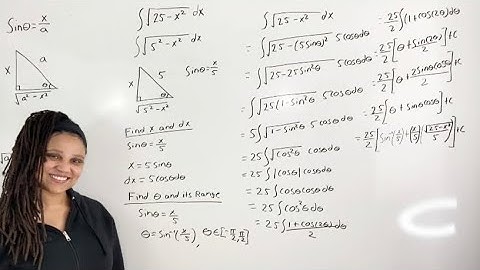 Sinθ = x/a
x
a
θ
√a² - x²
∫√25 - x² dx
∫√5² - x² dx
x
5
θ
√5² - x²
Sinθ = x/5
Find x and dx
Sinθ = x/5
x = 5sinθ
dx = 5cosθdθ
Find θ and its Range
Sinθ = x/5
θ = Sin⁻¹(x/5), θ∈[-π/2, π/2]
∫√25 - x² dx
= ∫√25 - (5sinθ)² 5cosθdθ
= ∫√25 - 25sin²θ 5cosθdθ
= ∫√25(1 - sin²θ) 5cosθdθ
= 5∫√1 - sin²θ 5cosθdθ
= 25∫√cos²θ cosθdθ
= 25∫|cosθ| cosθdθ
= 25∫cosθcosθdθ
= 25∫cos²θdθ
= 25∫(1 + cos(2θ))/2 dθ
= 25/2 ∫(1 + cos(2θ))dθ
= 25/2 [θ + sin(2θ)/2] + C
= 25/2 [θ + 2sinθcosθ/2] + C
= 25/2 [θ + sinθcosθ] + C
= 25/2 [sin⁻¹(x/5) + (x/5)(√25 - x²/5)] + C